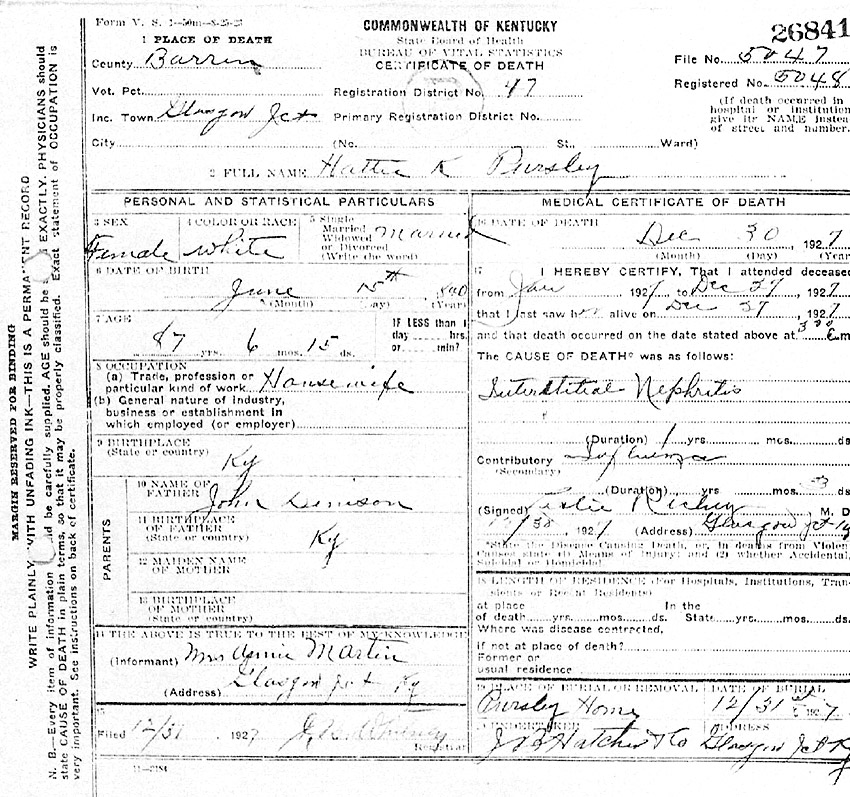 Form V. S. 1—50m—8-25-25
COMMONWEALTH OF KENTUCKY
State Board of Health
BUREAU OF VITAL STATISTICS
CERTIFICATE OF DEATH
26841
1 PLACE OF DEATH
County Barren
File No. 5047
Vot. Pct.
Registration District No. 47
Registered No. 5048
Inc. Town Glasgow Jct
Primary Registration District No.
(If death occurred in
hospital or institution
give its NAME instea
of street and number.
City (No. St., Ward)
2 FULL NAME Hattie K Pursley
PERSONAL AND STATISTICAL PARTICULARS
3 SEX
Female
4 COLOR OR RACE
White
5 Single
Married
Widowed
or Divorced
(Write the word)
Married
6 DATE OF BIRTH
June 15th 1840
(Month) (Day) (Year)
7 AGE
87 yrs. 6 mos. 15 ds.
IF LESS than 1
day hrs.
or min?
8 OCCUPATION
(a) Trade, profession or
particular kind of work Housewife
(b) General nature of industry,
business or establishment in
which employed (or employer)
9 BIRTHPLACE
(State or country)
Ky
PARENTS
10 NAME OF
FATHER John
11 BIRTHPLACE
OF FATHER
(State or country) Ky
12 MAIDEN NAME
OF MOTHER
13 BIRTHPLACE
OF MOTHER
(State or country)
14 THE ABOVE IS TRUE TO THE BEST OF MY KNOWLEDGE
(Informant) Mrs Annie Martin
(Address) Glasgow Jct Ky
15
Filed 12/31, 1927
Registrar
11-3184
MEDICAL CERTIFICATE OF DEATH
16 DATE OF DEATH
Dec 30, 1927
(Month) (Day) (Year
17
I HEREBY CERTIFY, That I attended deceased
from Jan 1927 to Dec 29, 1927
that I last saw her alive on Dec 29, 1927
and that death occurred on the date stated above at 3 m
The CAUSE OF DEATH* was as follows:
Interstitial Nephritis
(Duration) 1 yrs. mos. ds
Contributory Influenza
(Secondary)
(Duration) yrs. mos. 3 ds
(Signed) Leslie Richey M. D
12/30, 1927 (Address) Glasgow Jct Ky
*State the Disease Causing Death, or, in deaths from Violen
Causes state (1) Means of Injury; and (2) whether Accidental,
Suicidal or Homicidal
18 LENGTH OF RESIDENCE (For Hospitals, Institutions, Tran-
sients or Recent Residents)
at place In the
of death yrs. mos. ds. State yrs. mos. ds.
Where was disease contracted,
if not at place of death?
Former or
usual residence
19 PLACE OF BURIAL OR REMOVAL
Pursley Home
DATE OF BURIAL
12/31, 1927
20 UNDERTAKER
J B Hatcher & Co
ADDRESS
Glasgow Jct K
MARGIN RESERVED FOR BINDING
WRITE PLAINLY WITH UNFADING INK—THIS IS A PERMA NT RECORD
N. B.—Every item of information ld be carefully supplied. AGE should be s EXACTLY. PHYSICIANS should
state CAUSE OF DEATH in plain terms, so that it may be properly classified. Exact statement of OCCUPATION is
very important. See instructions on back of certificate.